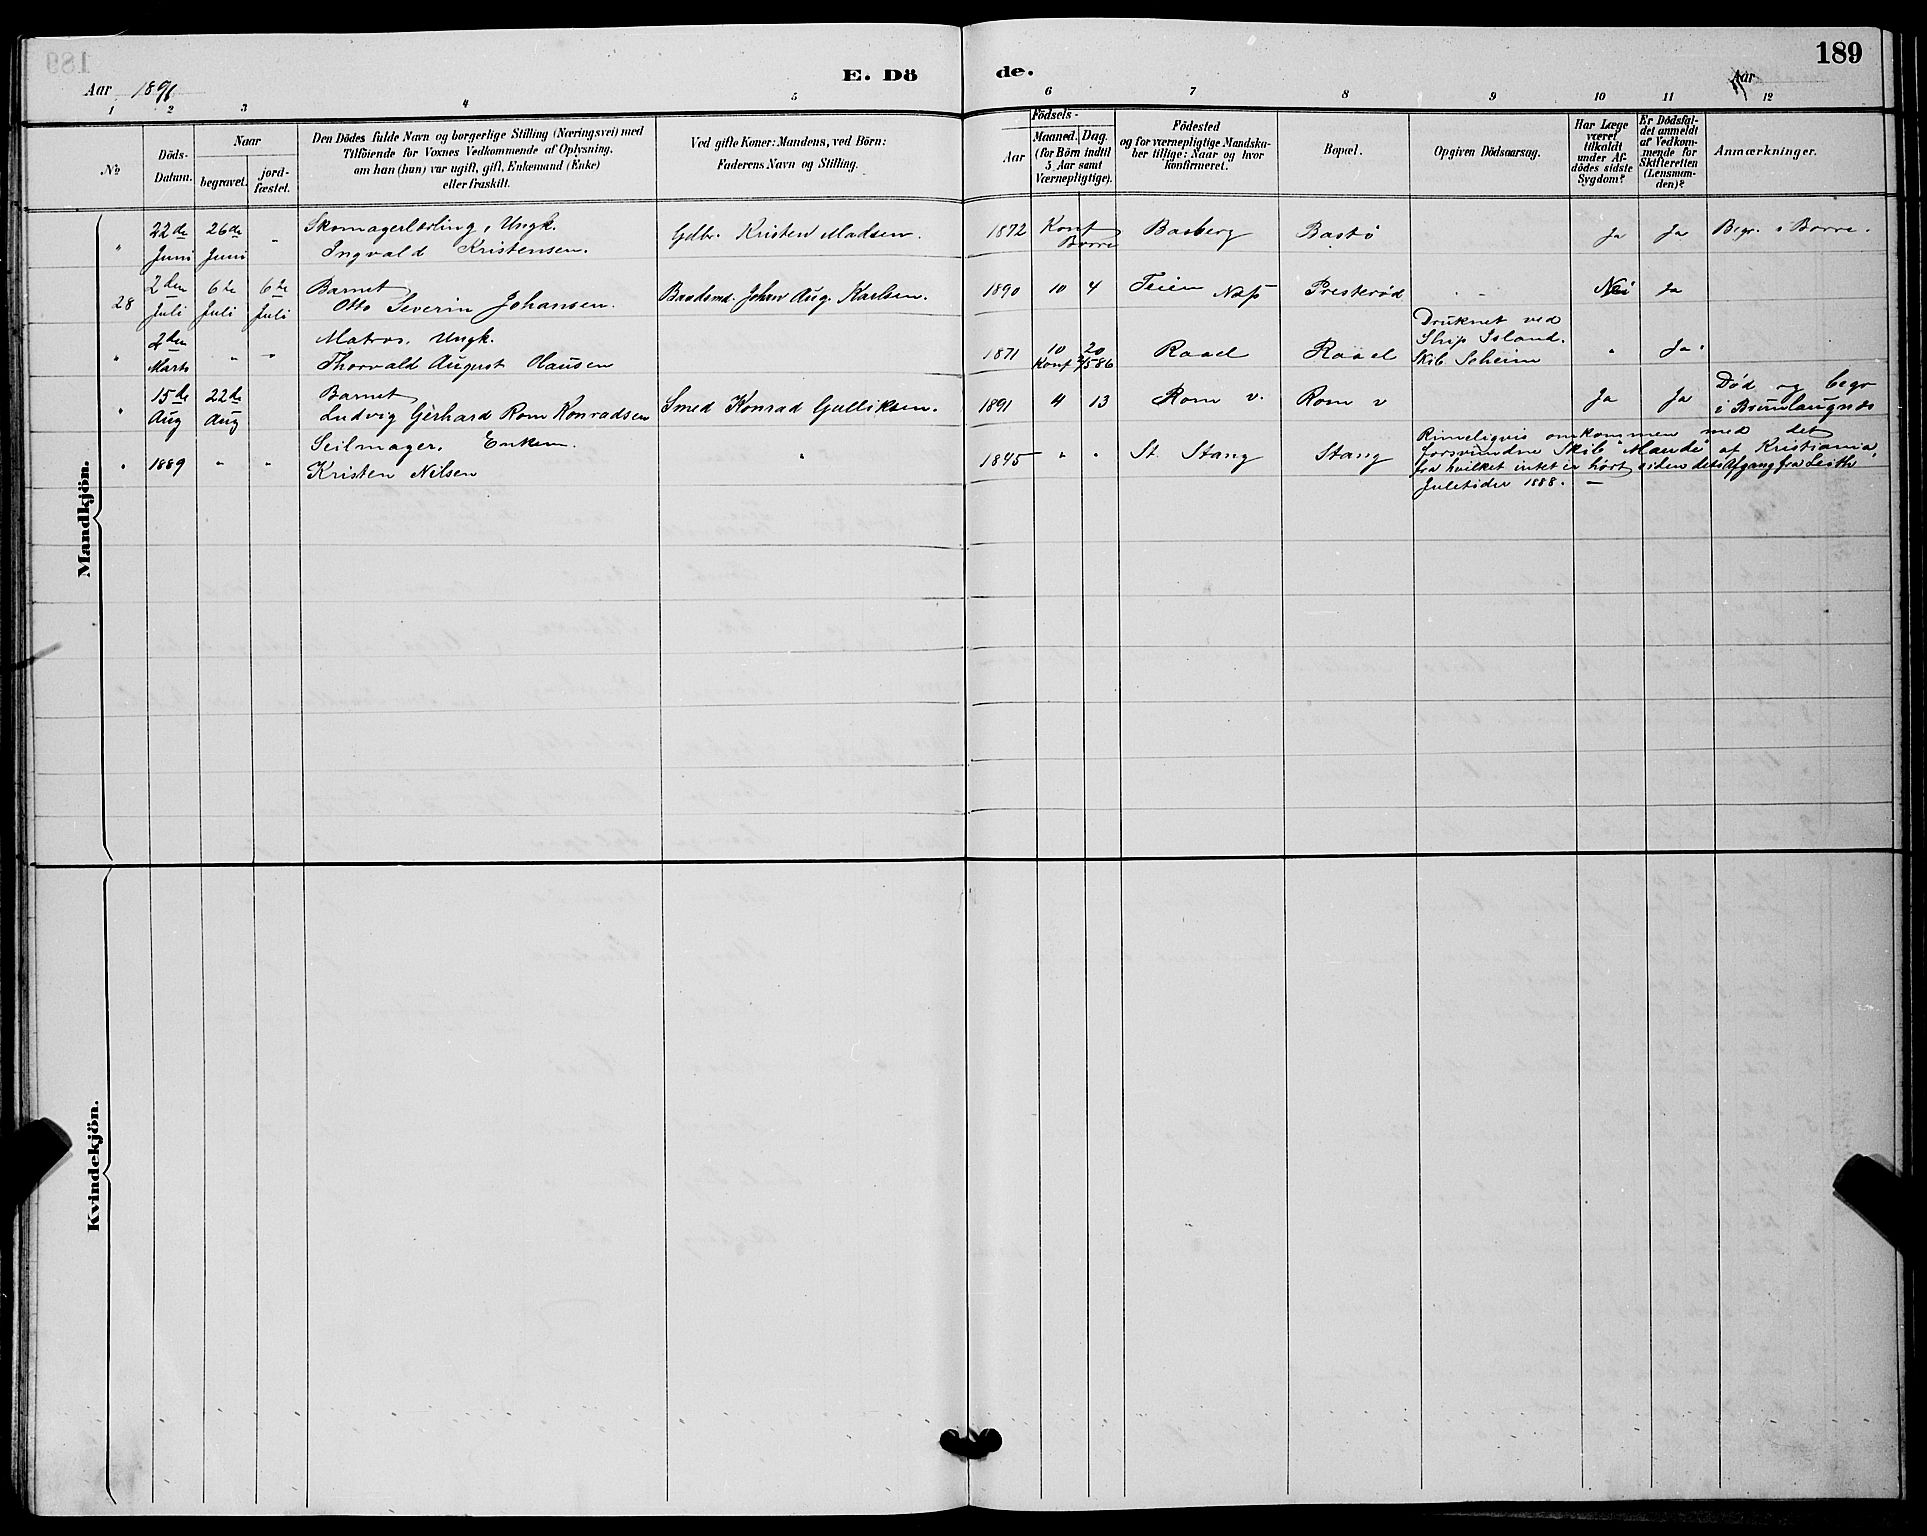 189
E. Dö de.
Aar 1891
Aar
1 2 3 4 5 6 7 8 9 10 11 12
No
Döds-Datum.
Naar
begravet.
jord-fæstet.
Den Dödes fulde Navn og borgerlige Stilling (Næringsvei) med
Tilföiende for Voxnes Vedkommende af Oplysning,
om han (hun) var ugift, gift, Enkemand (Enke)
eller fraskilt.
Ved gifte Koner: Mandens, ved Börn:
Faderens Navn og Stilling.
Födsels-
Aar
Maaned. Dag.
(for Börn indtil
5 Aar samt
Værnepligtige).
Födested
og for værnepligtige Mandska-
ber tillige: Naar og hvor
konfirmeret.
Bopæl.
Opgiven Dödsaarsag.
Har Læge
været
tilkaldt
under Af-
dödes sidste
Sygdom?
Er Dödsfal-
det anmeldt
af Vedkom-
mende for
Skifteretten
(Lensman-
den)?
Anmærkninger.
Mandkjön.
" 22de Juni 26de Juni " Skomagerlærling, Ungk.
Ingvald Kristensen. Gdbr. Kristen Madsen. 1872 Konf Borre Basberg Bastö Ja Ja Begr. i Borre.
28 2den Juli 6te Juli 6te Juli Barnet
Otto Severin Johansen. Baadsmd. Johan Aug. Karlsen. 1890 10 4 Teien Næs Presterød - Nei Ja
" 2den Marts " " Matros, Ungk.
Thorvald August Hansen 1871 10 20 Konf 4/5 86 Raael Raael Druknet ved
Ship Island.
Skib Scheim " Ja.
" 15de Aug 22de Aug Barnet
Ludvig Gerhard Rom Konradsen Smed Konrad Gulliksen. 1891 4 13 Rom v. Rom v Ja Ja Død og begr
i Brunlaugnæs
" 1889 " " Seilmager, Enkem.
Kristen Nilsen " 1845 " " St. Stang Stang Rimeligvis omkommen med det
forsvundne Skib "Maude" af Kristiania,
fra hvilket intet er hørt siden dets Afgang fra Leith
Juletider 1888. —
Kvindekjön.